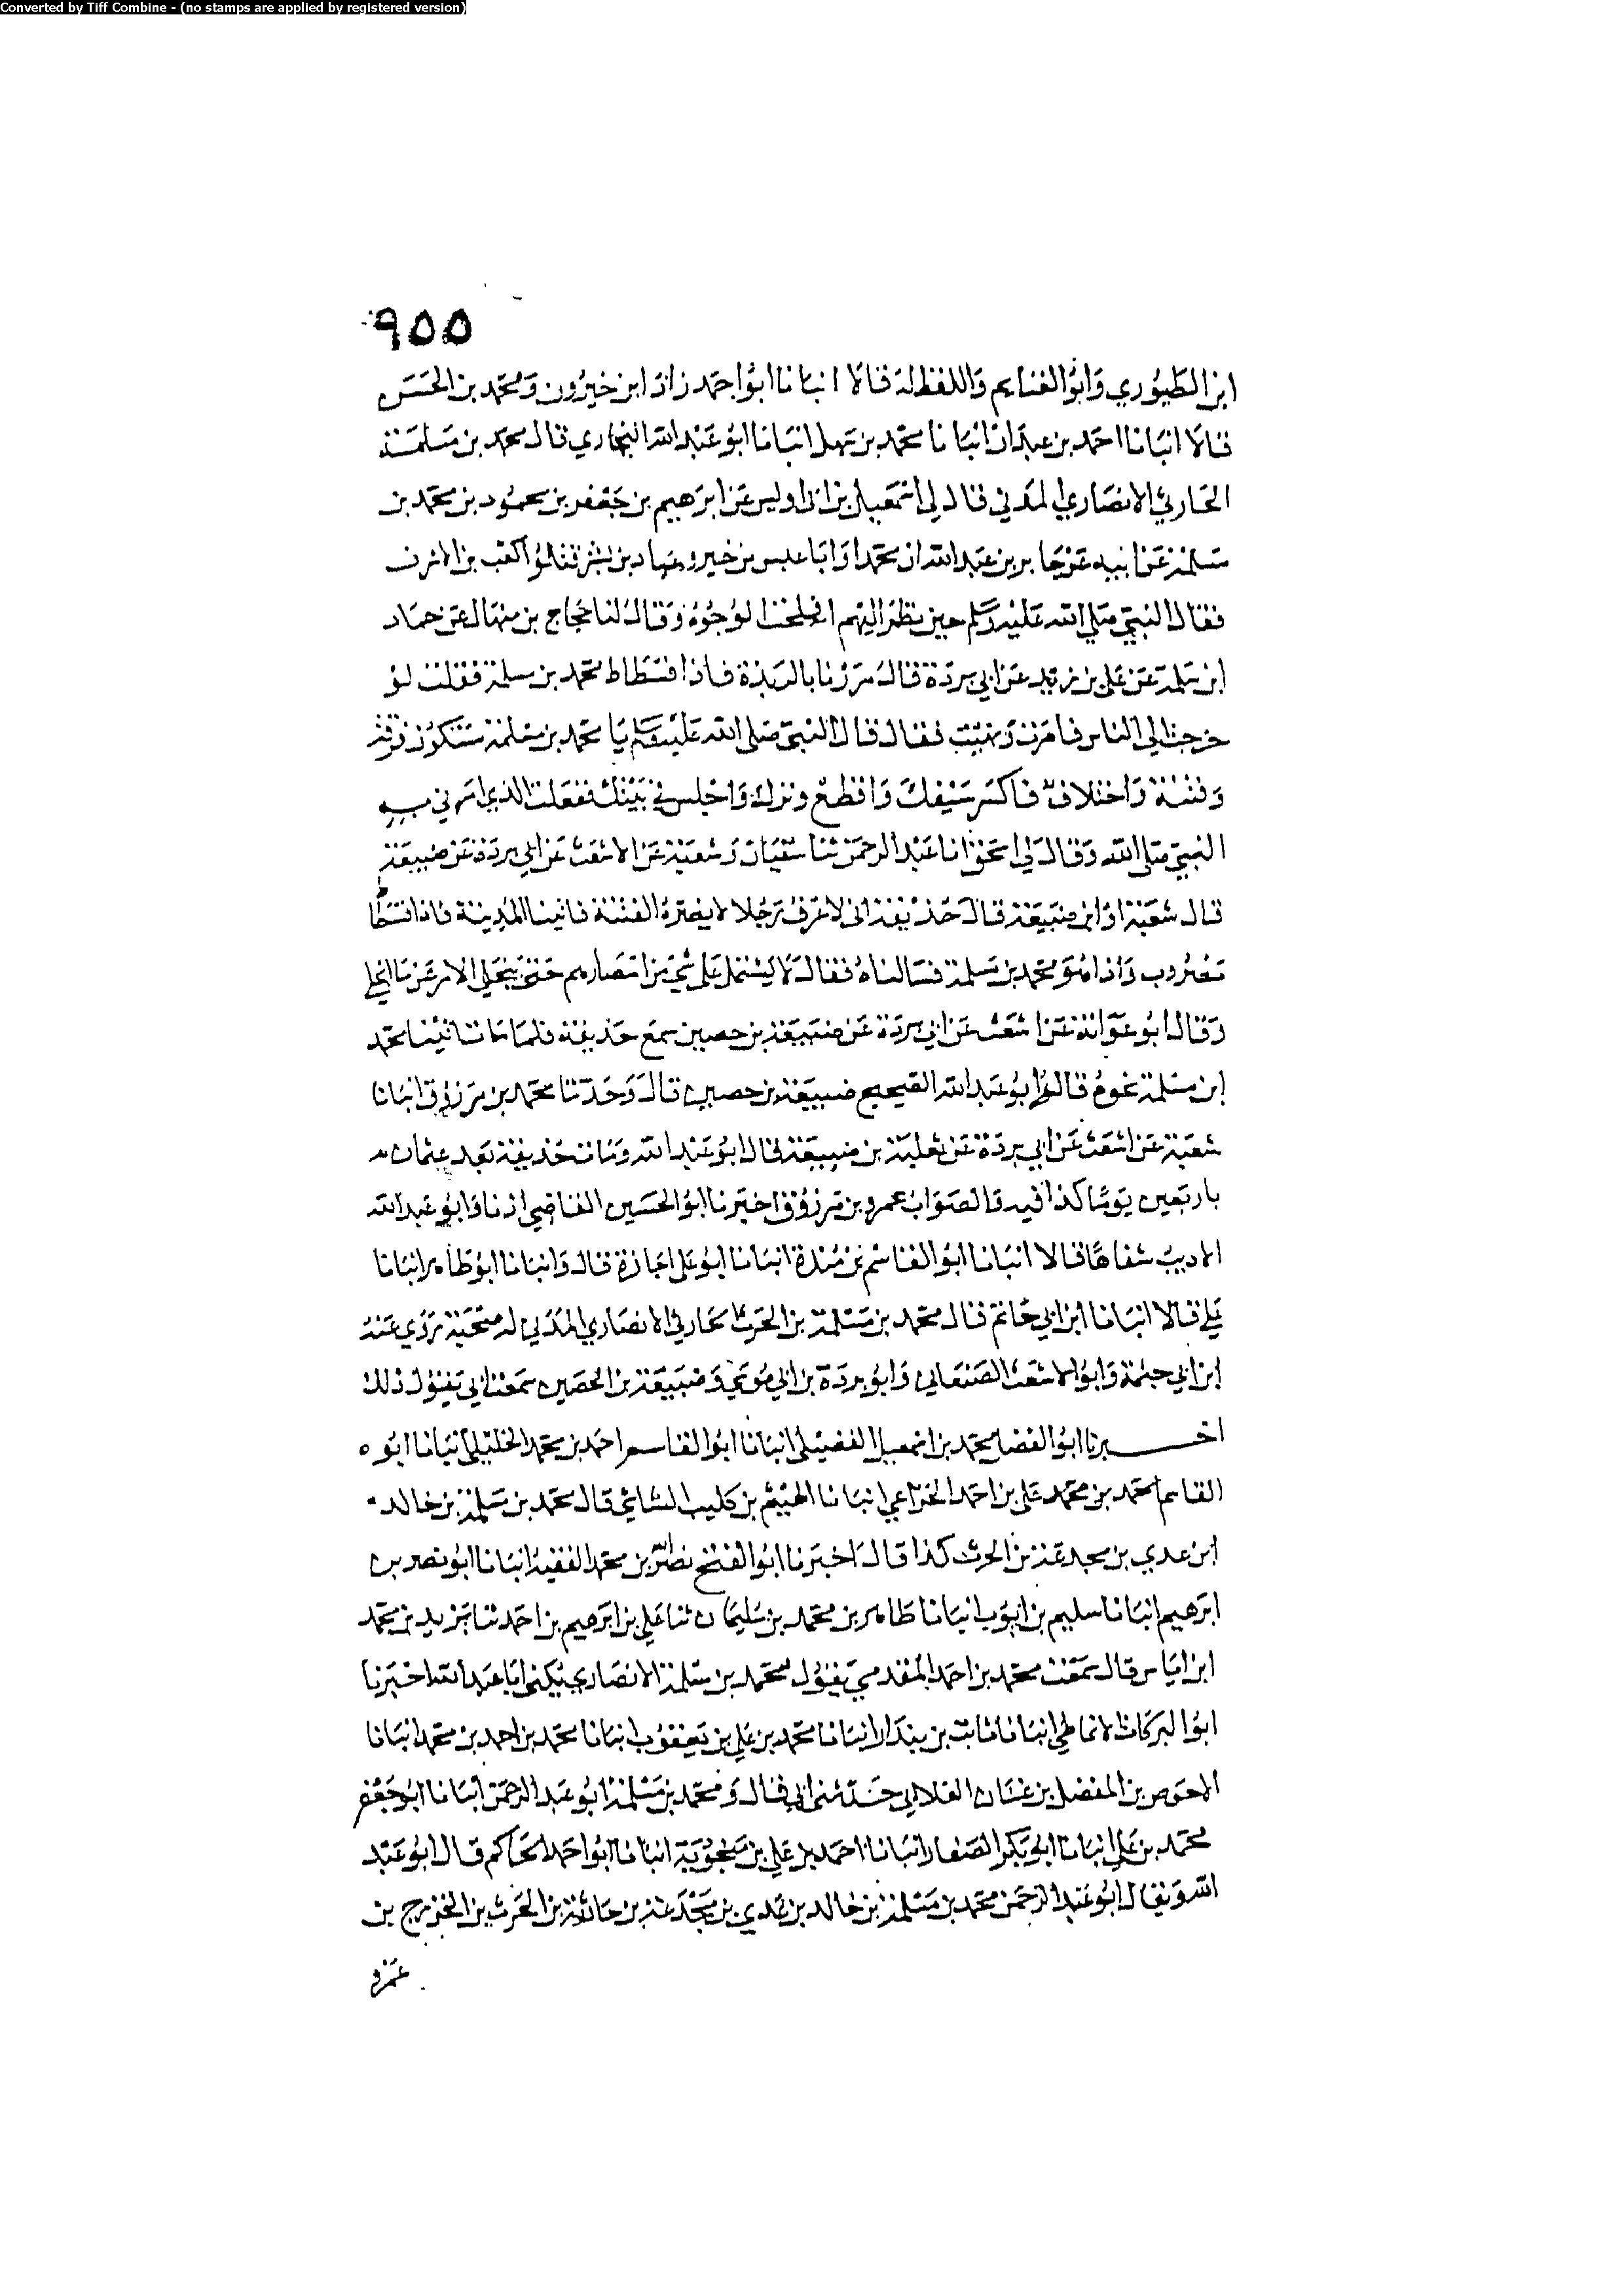 Converted by Tiff Combine - (no stamps are applied by registered version)
٩٥٥
ابن الطيوري وابو الغنايم واللفظ له قالا انبانا ابو احمد زاد ابن خيرون ومحمد بن الحسن
قالا انبانا احمد بن عبدان انبانا محمد بن سهل انبانا ابو عبد الله البخاري قال محمد بن مسلمة
الحارثي الانصاري المدني قال لي اسمعيل بن ابي اويس عن ابرهيم بن جعفر بن محمود بن محمد بن
مسلمة عن ابيه عن جابر بن عبد الله ان محمدا وابا عبس بن خبر وعباد بن بشر قتلوا كعب بن الاشرف
فقال النبي صلى الله عليه وسلم حين نظر اليهم افلحت الوجوه وقال لنا حجاج بن منهال عن حماد
ابن سلمة عن علي بن زيد عن ابي بردة قال مررنا بالربذة فاذا فسطاط محمد بن مسلمة فقلت لو
خرجت الى الناس فامرت ونهيت فقال قال النبي صلى الله عليه وسلم يا محمد بن مسلمة ستكون فرقة
وفتنة واختلاف فاكسر سيفك واقطع وترك واجلس في بيتك ففعلت الذي امرني به
النبي صلى الله وقال لي اسحق انا عبد الرحمن ثنا سفيان وشعبة عن الاشعث عن ابي بردة عن ضبيعة
قال شعبة او ابن ضبيعة قال حذيفة اني لاعرف رجلا لا يضره الفتنة فاتينا المدينة فاذا فسطاط
مضروب واذا هو محمد بن مسلمة فسالناه فقال لا يشتمل على شي من امصارهم حتى ينجلي الامر عن ما انجلى
وقال ابو عوانة عن اشعث عن ابي بردة عن ضبيعة بن حصين سمع حذيفة فلما مات اتينا محمد
ابن مسلمة نحوه قال ابو عبد الله الصحيح ضبيعة بن حصين قال وحدثنا محمد بن مرزوق انبانا
شعبة عن اشعث عن ابي بردة عن ثعلبة بن ضبيعة قال ابو عبد الله ومات حذيفة بعد عثمان
باربعين يوما كذا فيه والصواب عمرو بن مرزوق اخبرنا ابو الحسين القاضي اذنا وابو عبد الله
الاديب شفاها قالا انبانا ابو القاسم بن مندة انبانا ابو علي اجازة قال وانبانا ابو طاهر انبانا
علي قالا انبانا ابن ابي حاتم قال محمد بن مسلمة بن الحرث الحارثي الانصاري المدني له صحبة روى عنه
ابن ابي حثمة وابو الاشعث الصنعاني وابو بردة بن ابي موسي وضبيعة بن الحصين سمعت ابي يقول ذلك
اخبرنا ابو الفضل محمد بن اسمعيل الفضيلي انبانا ابو القاسم احمد بن محمد الخليلي انبانا ابو
القاسم محمد بن محمد علي بن احمد الخزاعي انبانا الهيثم بن كليب الشاشي قال محمد بن مسلمة بن خالد
ابن عدي بن مجدعة بن الحرث كذا قال اخبرنا ابو الفتح نصر الله بن محمد الفقيه انبانا ابو نصر بن
ابرهيم انبانا سليم بن ايوب انبانا طاهر بن محمد بن سليمان ثنا علي بن ابرهيم بن احمد ثنا يزيد بن محمد
ابن اياس قال سمعت محمد بن احمد المقدمي يقول محمد بن مسلمة الانصاري يكنى ابا عبد الله اخبرنا
ابو البركات الانماطي انبانا ثابت بن بندار انبانا محمد بن علي بن يعقوب انبانا محمد بن احمد بن محمد انبانا
الاحوص بن المفضل بن غسان الغلابي حدثني ابي قال ومحمد بن مسلمة ابو عبد الرحمن انبانا ابو جعفر
محمد بن علي انبانا ابي بكر الصفار انبانا احمد بن علي بن منجويه انبانا ابو احمد الحاكم قال ابو عبد
الله ويقال ابو عبد الرحمن محمد بن مسلمة بن خالد بن عدي بن مجدعة بن حارثة بن الحرث بن الخزرج بن
عمرو